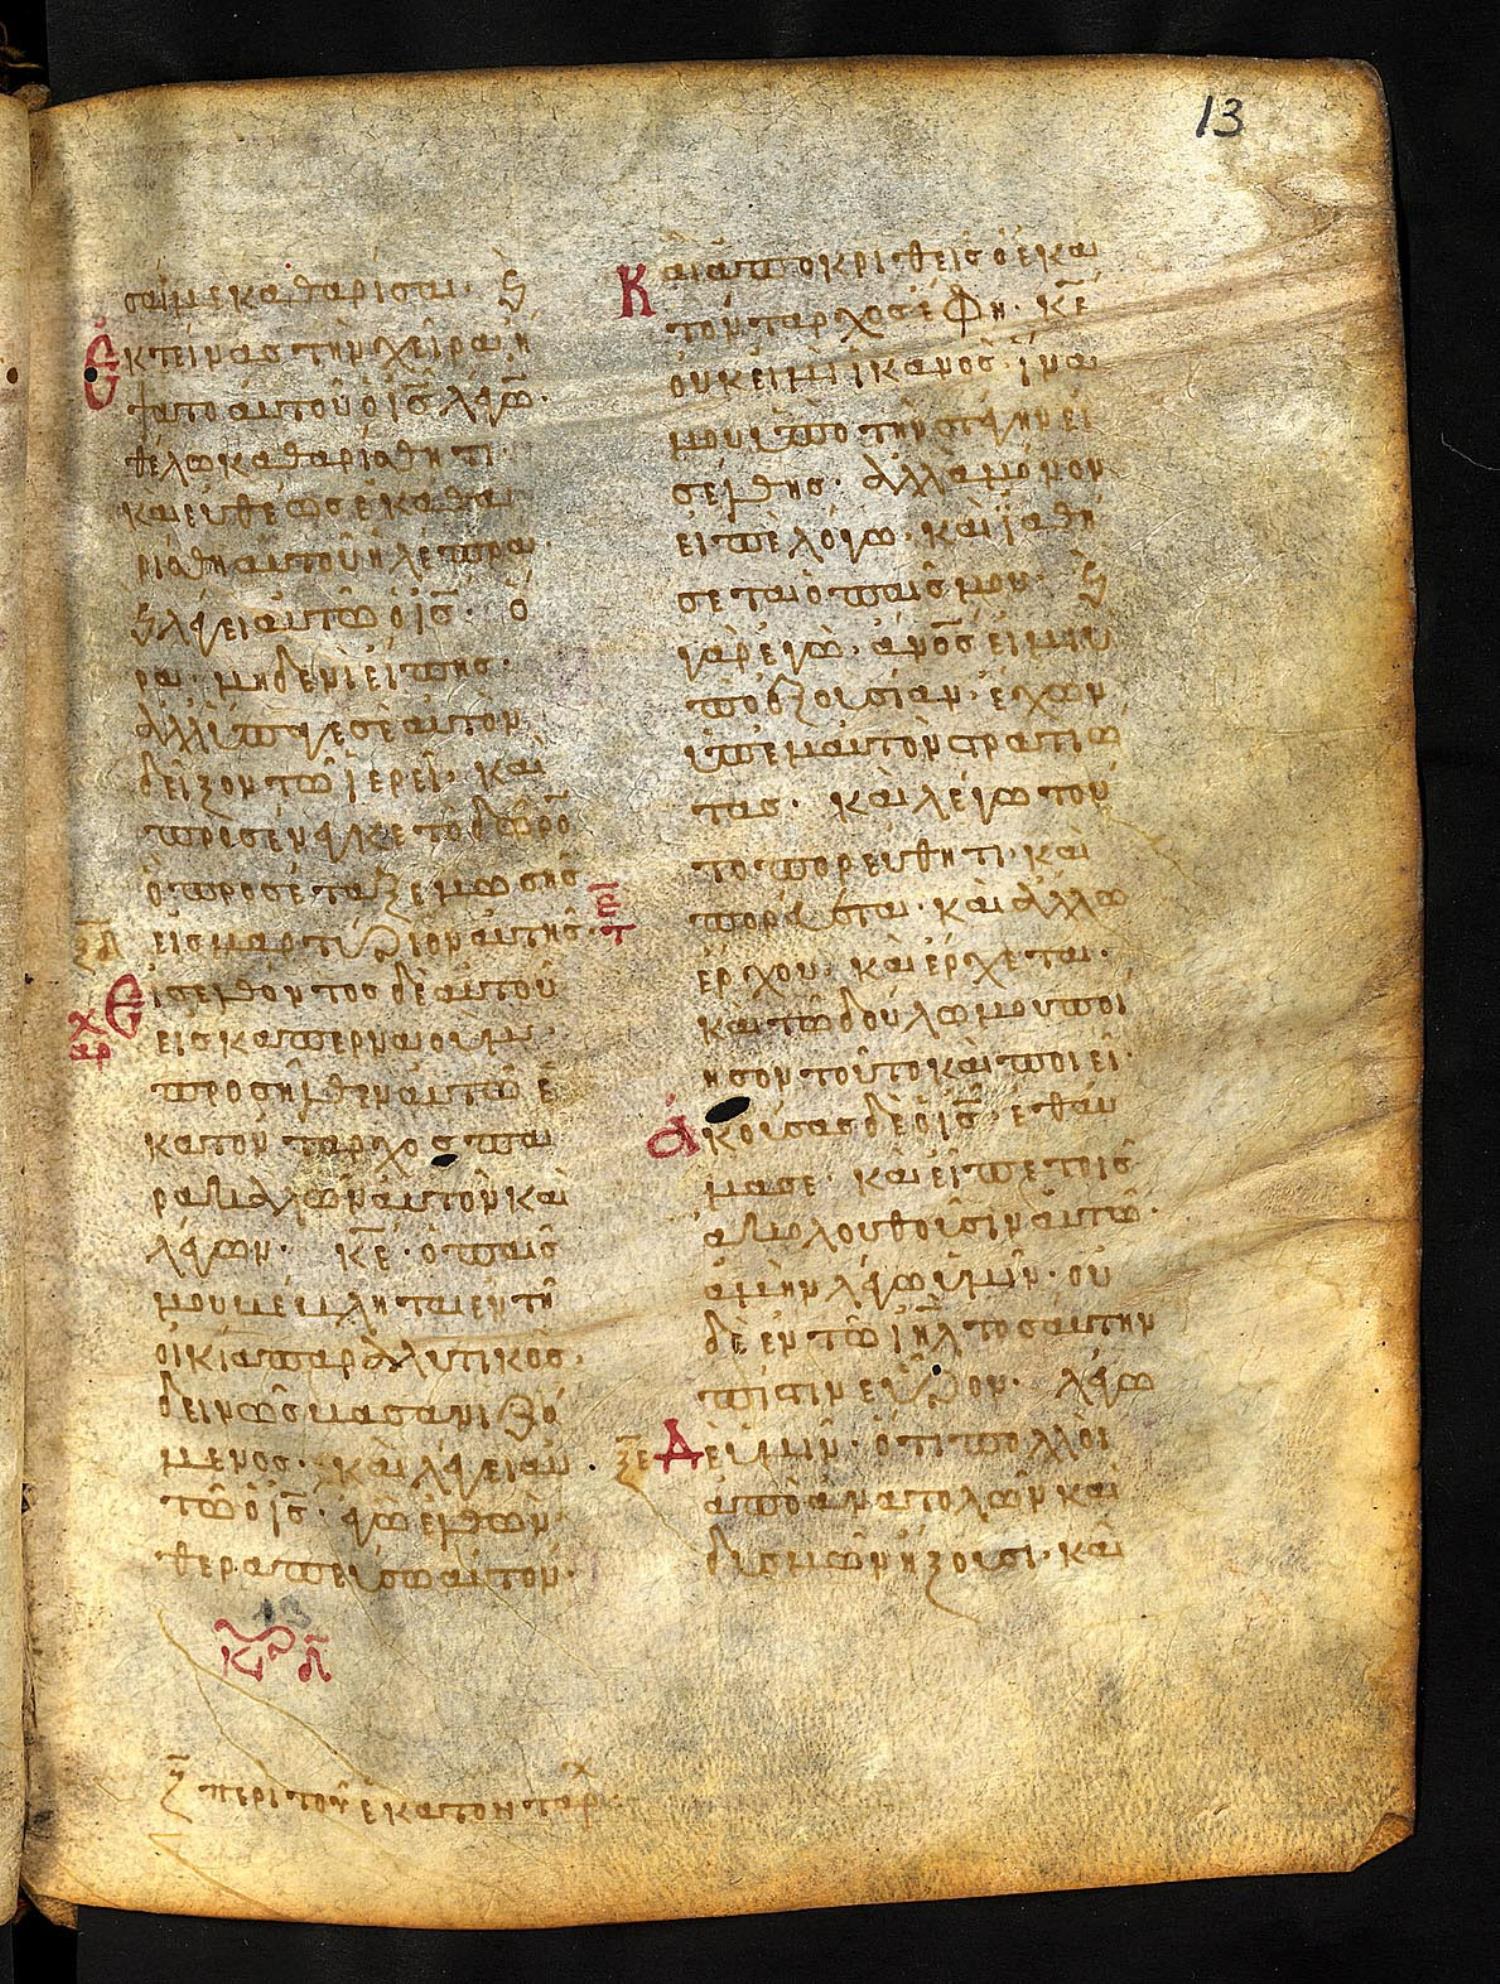 13
σαί με καθαρίσαι· ϗ
ἐκτείνας τὴν χεῖρα ἥ
ψατο αὐτοῦ ὁ ις̅ λέγω̅·
θέλω καθαρίσθητι·
καὶ εὐθέως ἐκαθα
ρίσθη αὐτοῦ ἡ λέπρα·
ϗ λέγει αὐτῶ ὁ ις̅· ὅ
ρα· μηδενὶ εἴπης·
ἀλλ' ὕπαγε σεαυτὸν
δεῖξον τῶ ἱερεῖ· καὶ
προσένεγκε τὸ δῶρο̅
ὃ προσέταξε μωσῆς
ξδ̅ εἰς μαρτύριον αὐτῆς· ε̅ τ
εἰσελθόντος δὲ αὐτοῦ
χ αρ εἰς καπερναούμ·
προσῆλθεν αὐτῶ ἑ
κατόνταρχος πα
ρακαλῶν αὐτὸν καὶ
λέγων· κε̅· ὁ παῖς
μου βέβληται ἐν τῆ
οἰκία παραλυτικὸς·
δεινῶς βασανιζό
μενος· καὶ λέγει αὐ
τῶ ὁ ις̅· ἐγὼ ἐλθὼν
θεραπεύσω αὐτόν·
Καὶ ἀποκριθεὶς ὁ ἑκα
τόνταρχος ἔφη· κε̅
οὐκ εἰμὶ ἱκανὸς ἵνα
μου ὑπὸ τὴν στέγην εἰ
σέλθης· ἀλλὰ μόνον
εἰπὲ λόγω· καὶ ἰαθή
σεται ὁ παῖς μου· ϗ
γὰρ ἐγὼ· ἀνος̅ εἰμι ὑ
πὸ ἐξουσίαν· ἔχων
ὑπ' ἐμαυτὸν στρατιώ
τας· καὶ λέγω τού
τω πορεύθητι· καὶ
πορεύεται· καὶ ἄλλω
ἔρχου· καὶ ἔρχεται·
καὶ τῶ δούλω μου ποί
ησον τοῦτο καὶ ποιεῖ·
ἀκούσας δὲ ὁ ις̅· ἐθαύ
μασε· καὶ εἶπε τοῖς
ἀκολουθοῦσιν αὐτῶ·
ἀμὴν λέγω ὑμῖν· οὐ
δὲ ἐν τῶ ιηλ̅ τοσαύτην
πίστιν εὗρον· λέγω
ξε̅ Δὲ ὑμῖν· ὅτι πολλοὶ
ἀπὸ ἀνατολῶν καὶ
δυσμῶν ἥξουσι· καὶ
13
κυ δ̅
ζ̅ περὶ τοῦ ἑκατοντάρχ